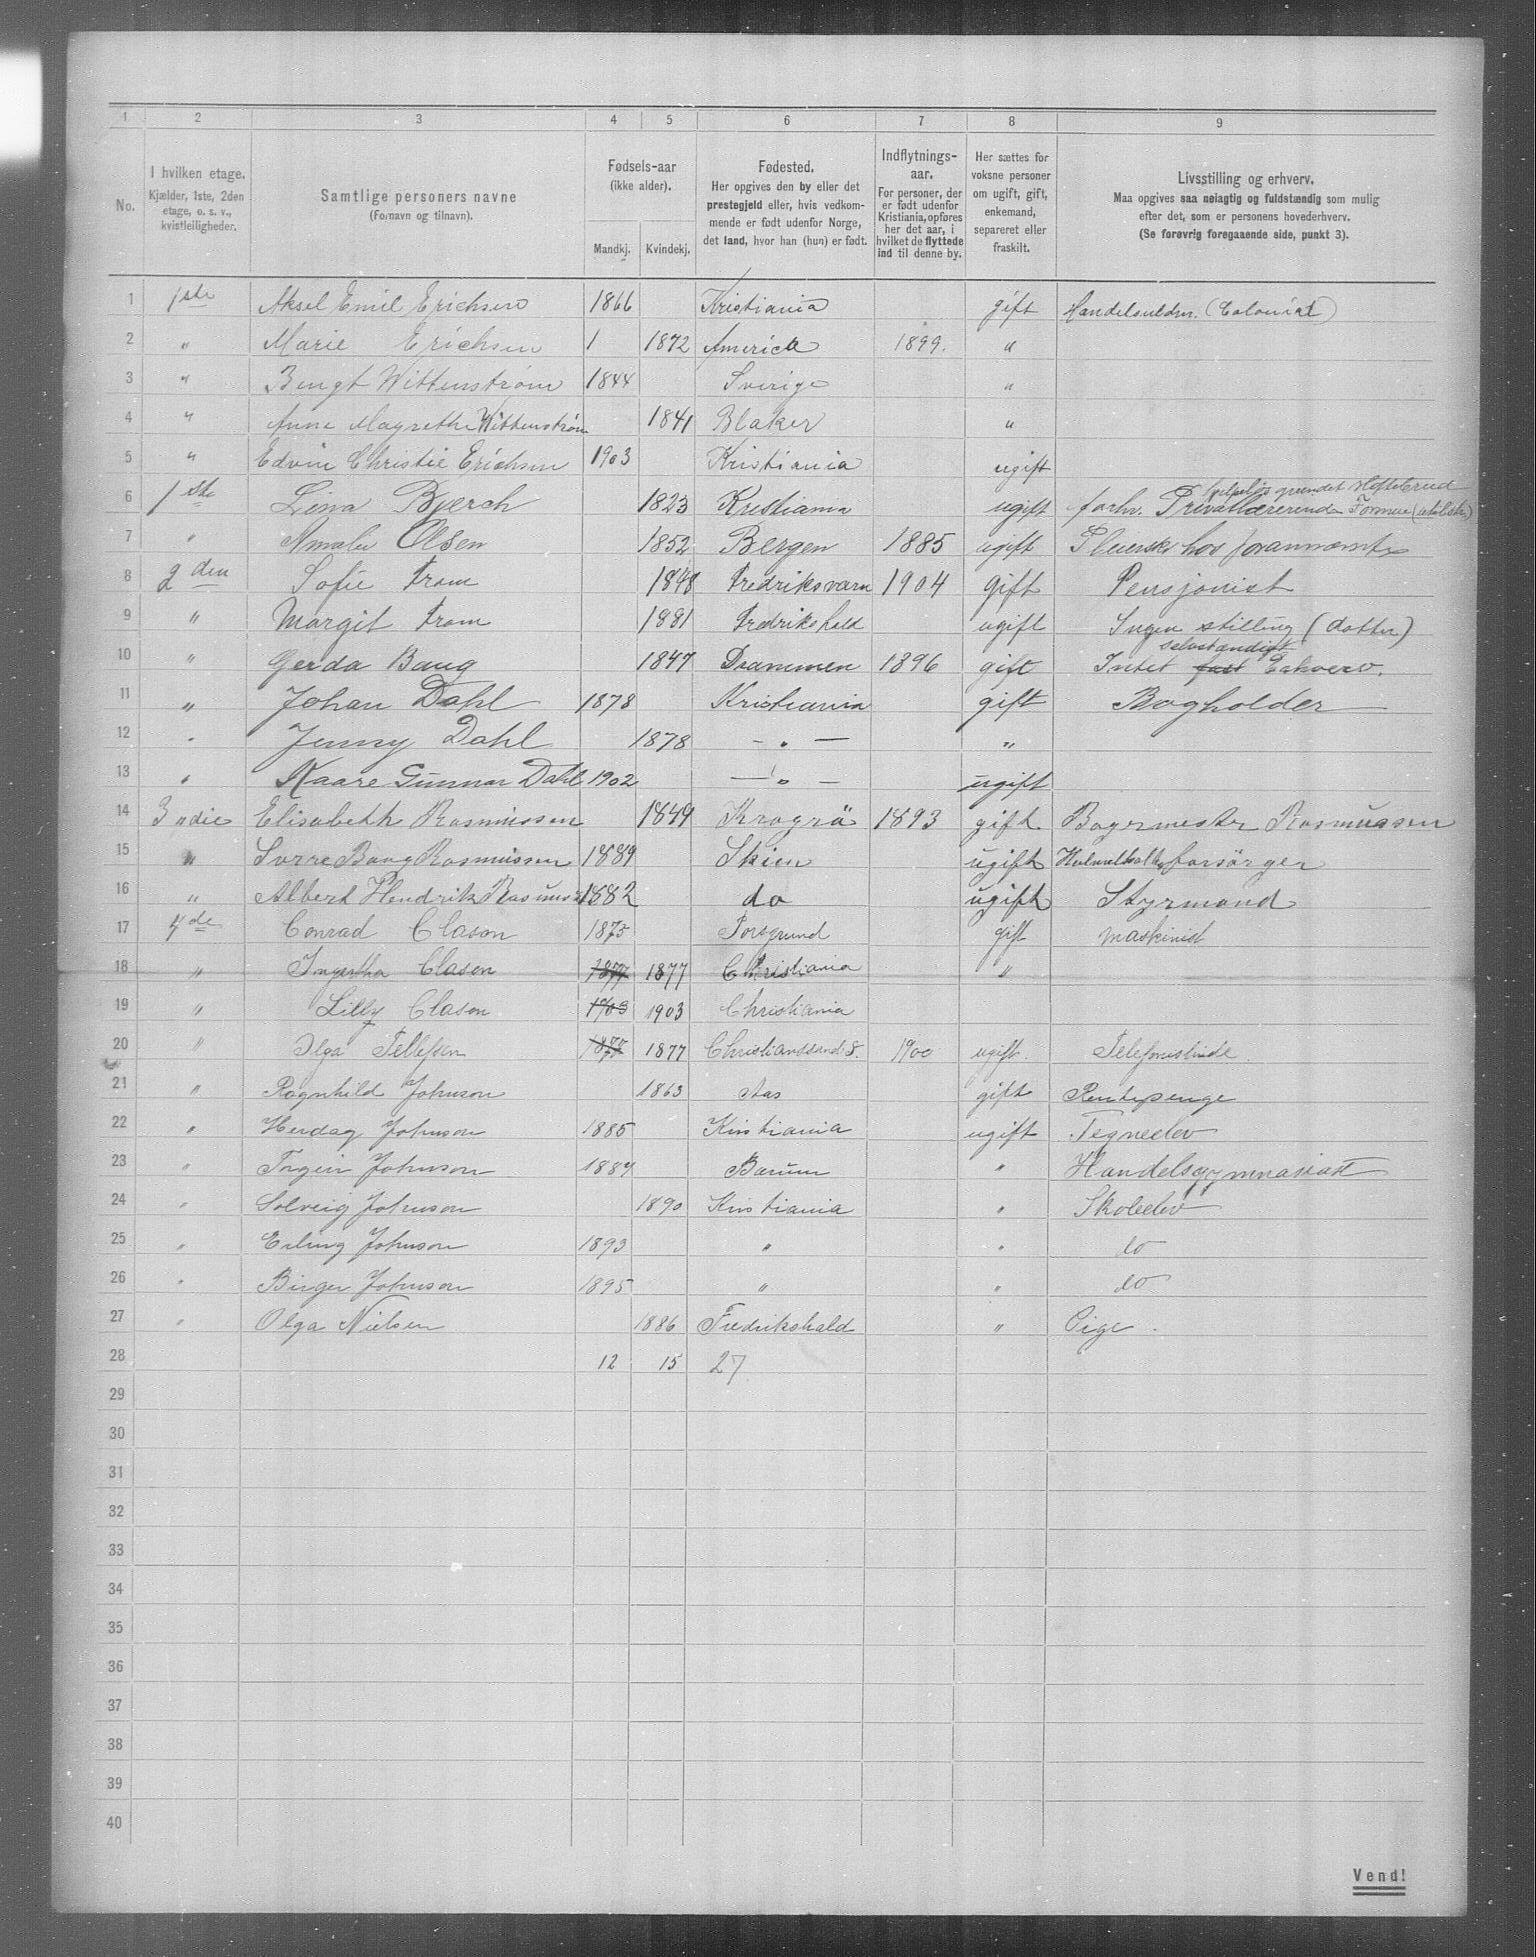 1 2 3 4 5 6 7 8 9
No.
I hvilken etage.
Kjælder, 1ste, 2den
etage, o. s. v.,
kvistleiligheder.
Samtlige personers navne
(Fornavn og tilnavn).
Fødsels-aar
(ikke alder).
Mandkj. Kvindekj.
Fødested.
Her opgives den by eller det
prestegjeld eller, hvis vedkom-
mende er født udenfor Norge,
det land, hvor han (hun) er født.
Indflytnings-
aar.
For personer, der
er født udenfor
Kristiania, opføres
her det aar, i
hvilket de flyttede
ind til denne by.
Her sættes for
voksne personer
om ugift, gift,
enkemand,
separeret eller
fraskilt.
Livsstilling og erhverv.
Maa opgives saa nøiagtig og fuldstændig som mulig
efter det, som er personens hovederhverv.
(Se forøvrig foregaaende side, punkt 3).
1 1ste Aksel Emil Erichsen 1866 Kristiania gift (Colonial)
2 " Marie Erichsen 1 1872 America 1899. "
3 " Bengt Wittenstrøm 1844 Sverige "
4 " Anne Magrethe Wittenstrøm 1841 Blaker "
5 " Edvin Christie Erichsen 1903 Kristiania ugift
6 1ste Lina Bjerch 1823 Kristiania ugift forhv. Privatlærerinde Formue
7 " Amalie Olsen 1852 Bergen 1885 ugift Pleierske hos forannævnte
8 2den Sofie Fram 1848 Fredriksværn 1904 gift Pensjonist
9 " Margit Fram 1881 Fredrikshald ugift Ingen stilling (datter)
selvstændigt
10 " Gerda Baug 1847 Drammen 1896 gift Intet fast Erhverv.
11 " Johan Dahl 1878 Kristiania gift Bogholder
12 " Jenny Dahl 1878 — " — "
13 " Kaare Gunnar Dahl 1902 — " — ugift
14 3die Elisabeth Rasmussen 1849 Kragrø 1893 gift Bagermester Rasmussen
15 " Sverre Bang Rasmussen 1889 Skien ugift forsørger
16 " Albert Hendrik Rasmus 1882 do ugift Styrmand
17 4de Conrad Clason 1875 Porsgrund gift Maskinist
18 " Ingertha Clasen 1877 1877 Christiania "
19 " Lilly Clason 1903 1903 Christiania
20 " Olga Tellefsen 1877 1877 Christianssand S. 1900 ugift. Telefonistinde.
21 " Ragnhild Johnson 1863 Aas gift Rentepenge
22 " Herdag Johnson 1885 Kristiania ugift Tegneelev
23 " Ingein Johnson 1887 Bærum " Handelsgymnasiast
24 " Solveig Johnson 1890 Kristiania " Skoleelev
25 " Erling Johnson 1893 " " do
26 " Birger Johnson 1895 " " do
27 " Olga Nielsen 1886 Fredrikshald " Pige.
28 12 15 27
29
30
31
32
33
34
35
36
37
38
39
40
Vend!